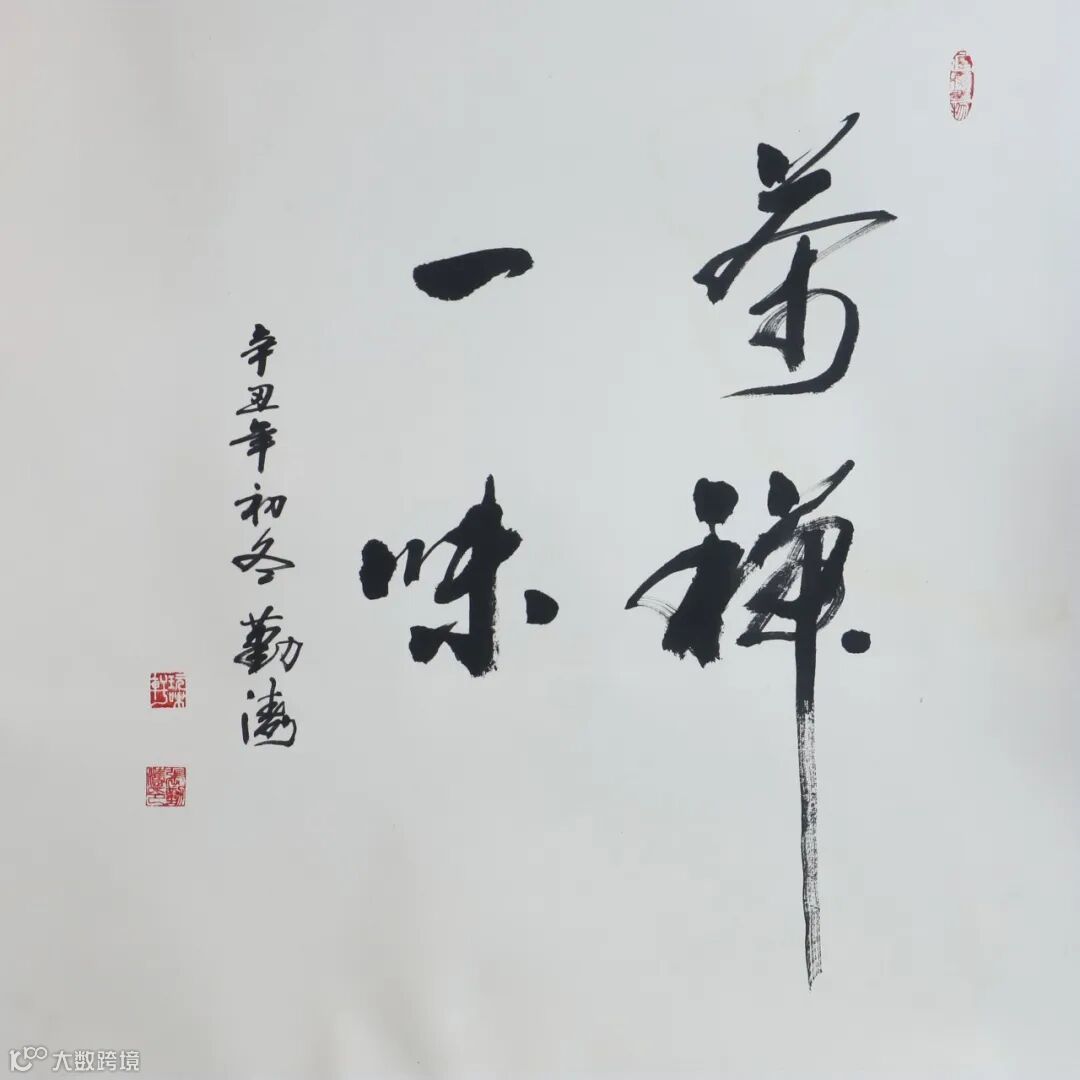 茶禅
一味
辛丑年初冬 勤涛
大数跨境